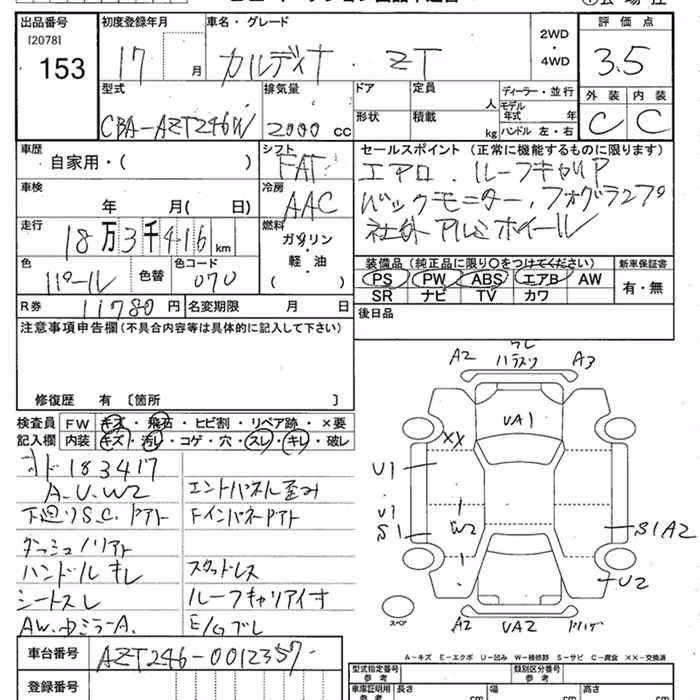 出品番号
[2078]
153
初度登録年月
17 月
車名・グレード
カルディナ . ZT
2WD
・
4WD
評価点
3.5
外装 内装
C C
型式
CBA-AZT246W
排気量
2000 cc
ドア
形状
定員 人
積載 kg
ディーラー・並行
モデル年式 年
ハンドル 左・右
車歴
自家用・( )
シフト
FAT
車検
年 月( 日)
冷房
AAC
走行
18万3千416 km
燃料
ガソリン
・
軽・油
( )
色
パール
色替
色コード
070
R券 11780 円
名変期限 月 日
セールスポイント (正常に機能するものに限ります)
エアロ . ルーフキャリア
バックモニター,フォグランプ
社外アルミホイール
装備品(純正品に限り○をつけてください)
PS PW ABS エアB AW
SR ナビ TV カワ
新車保証書
有・無
後日品
注意事項申告欄(不具合内容等は具体的に記入して下さい)
修復歴 有 〔箇所 〕
検査員記入欄
FW キズ・飛石・ヒビ割・リペア跡・×要
内装 キズ・汚レ・コゲ・穴・スレ・キレ・破レ
メド183417
A.U.W2
下廻りS.C.ドアト
ダッシュノリアト
ハンドルキレ
シートスレ
AW.ドミラーA.
エンドパネル歪み
Fインパネドアト
スタッドレス
ルーフキャリア付
E/Gブレ
A2
ハラスリ
A3
UA1
XX
U1
U1
S1
W2
S1A2
U2
A2
UA2
スペア
A-キズ E-エクボ U-凹み W-補修跡 S-サビ C-腐食 ××-交換済
車台番号 AZT246-0012357
登録番号
型式指定番号
参考
類別区分番号
車庫証明用
参考
長さ cm
幅 cm
高さ cm